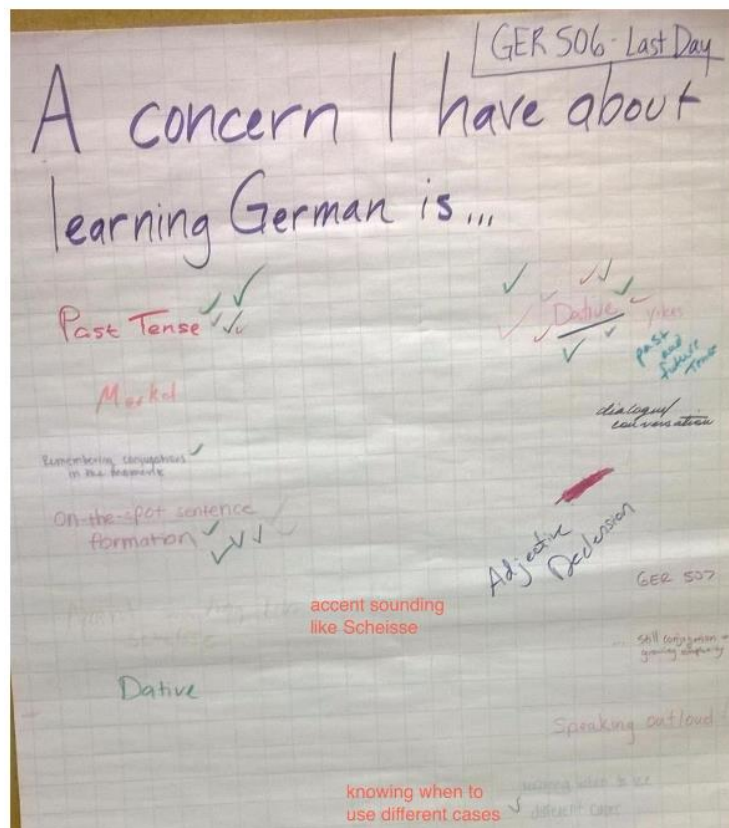 GER 506 - Last Day
A concern I have about
learning German is...
Past Tense
Dative yikes
past
and
future
Tense
Merkel
dialogue/
conversation
Remembering conjugations
in the moment
On-the-spot sentence
formation
Adjective
Declension
GER 507
accent sounding
like Scheisse
Scheisse
Still conjugation
growing complexity
Dative
Speaking outloud
knowing when to
use different cases
knowing when to use
different cases